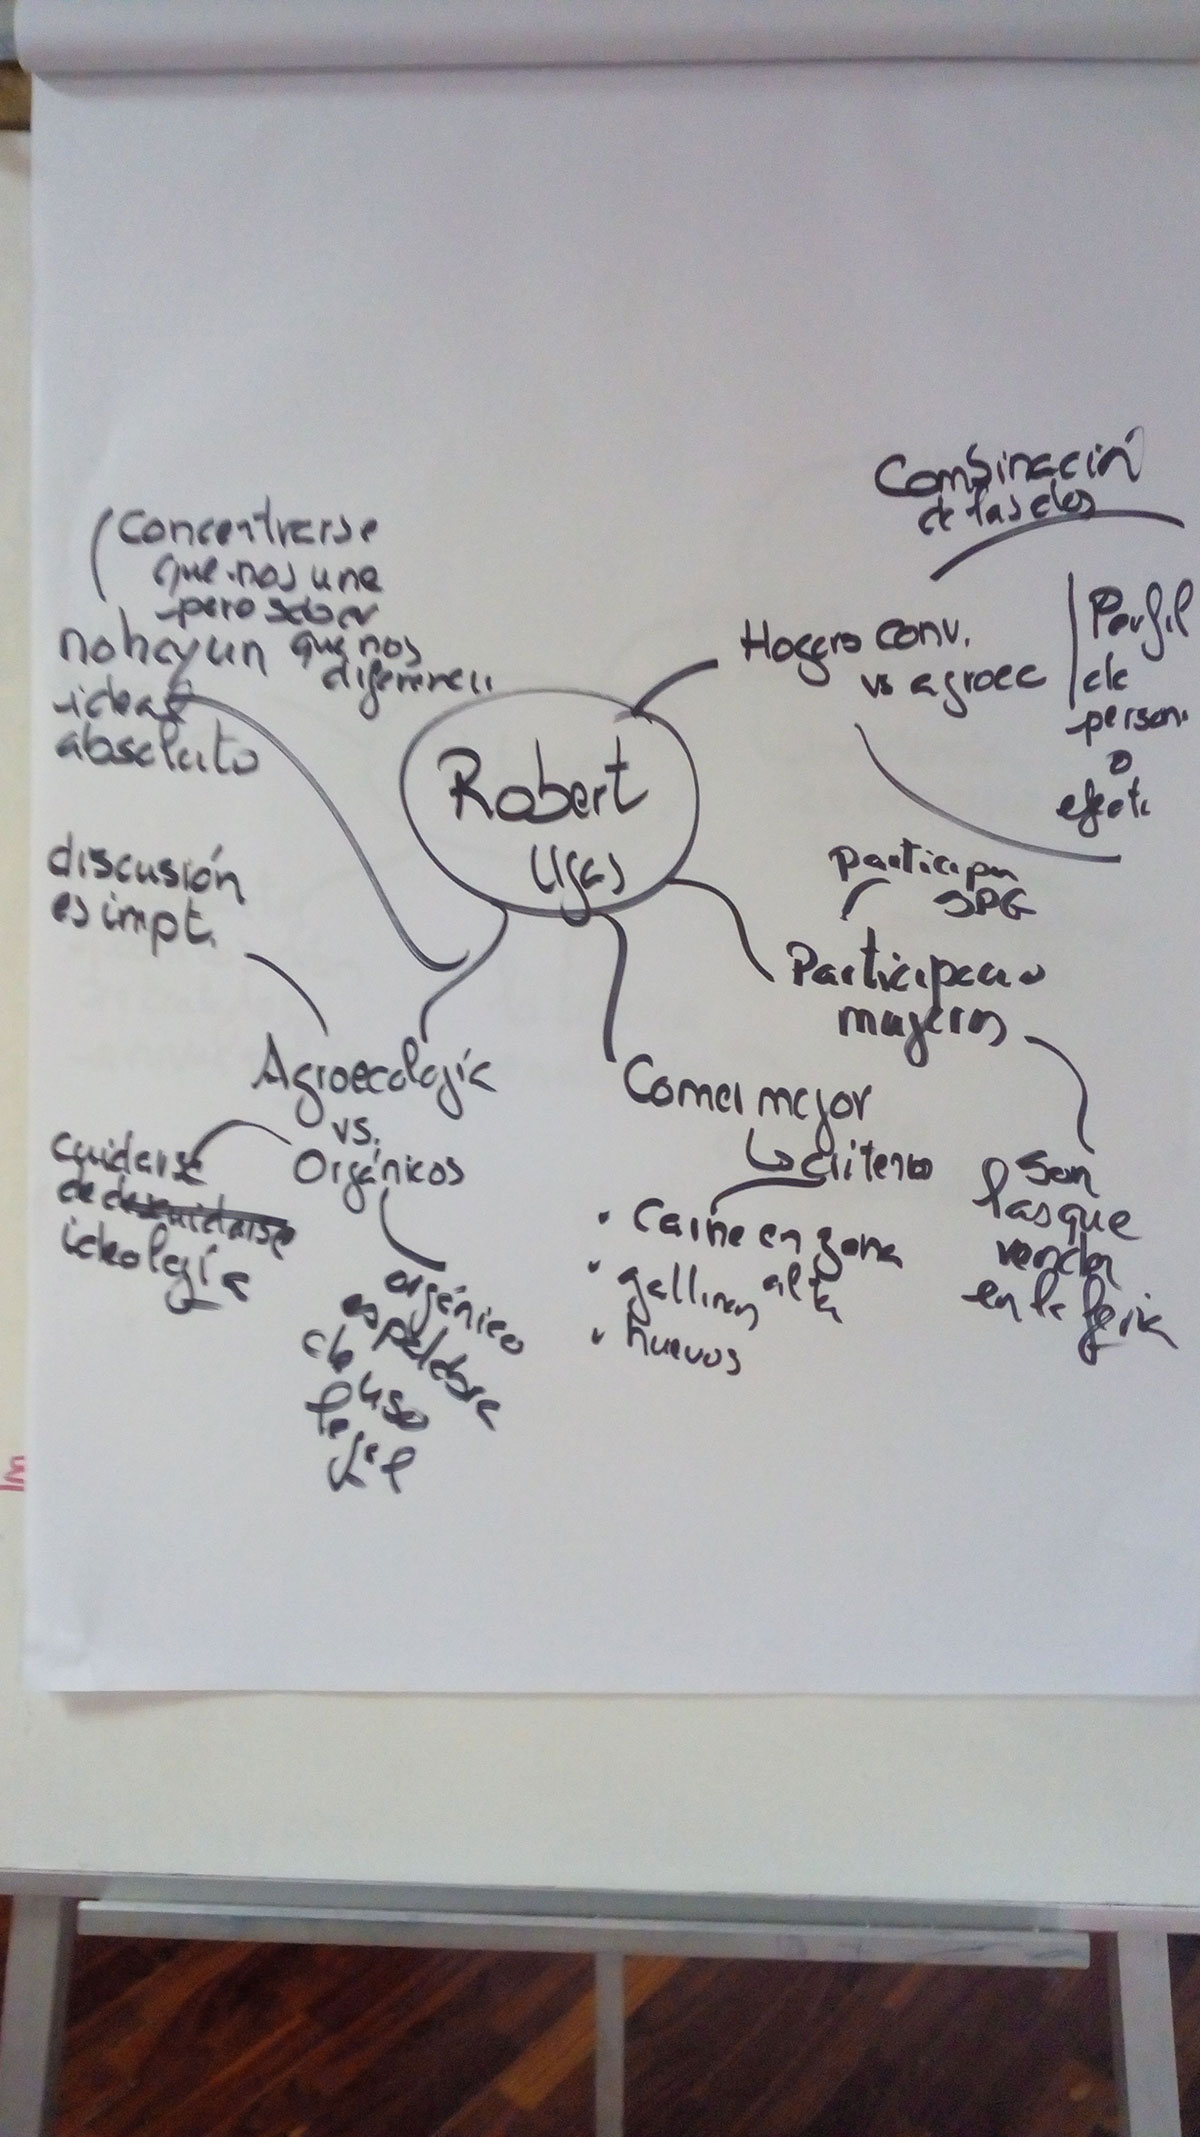 Combinación
de las dos
Hogero conv.
vs agroec
Perfil
de
person.
o
efect.
Concentrarse
que nos une
pero saber
que nos
diferenci
no hay un
ideas
absoluto
Robert
Ugas
discusión
es impt.
participan
SPG
Participacio
mujeres
Agroecología
vs.
Orgánicos
Comer mejor
criterio
cuidarse
de descuidarse
ideología
Carne en zona
alta
gallinas
huevos
Son
las que
venden
en la feria
orgánico
es palabra
de uso
legal